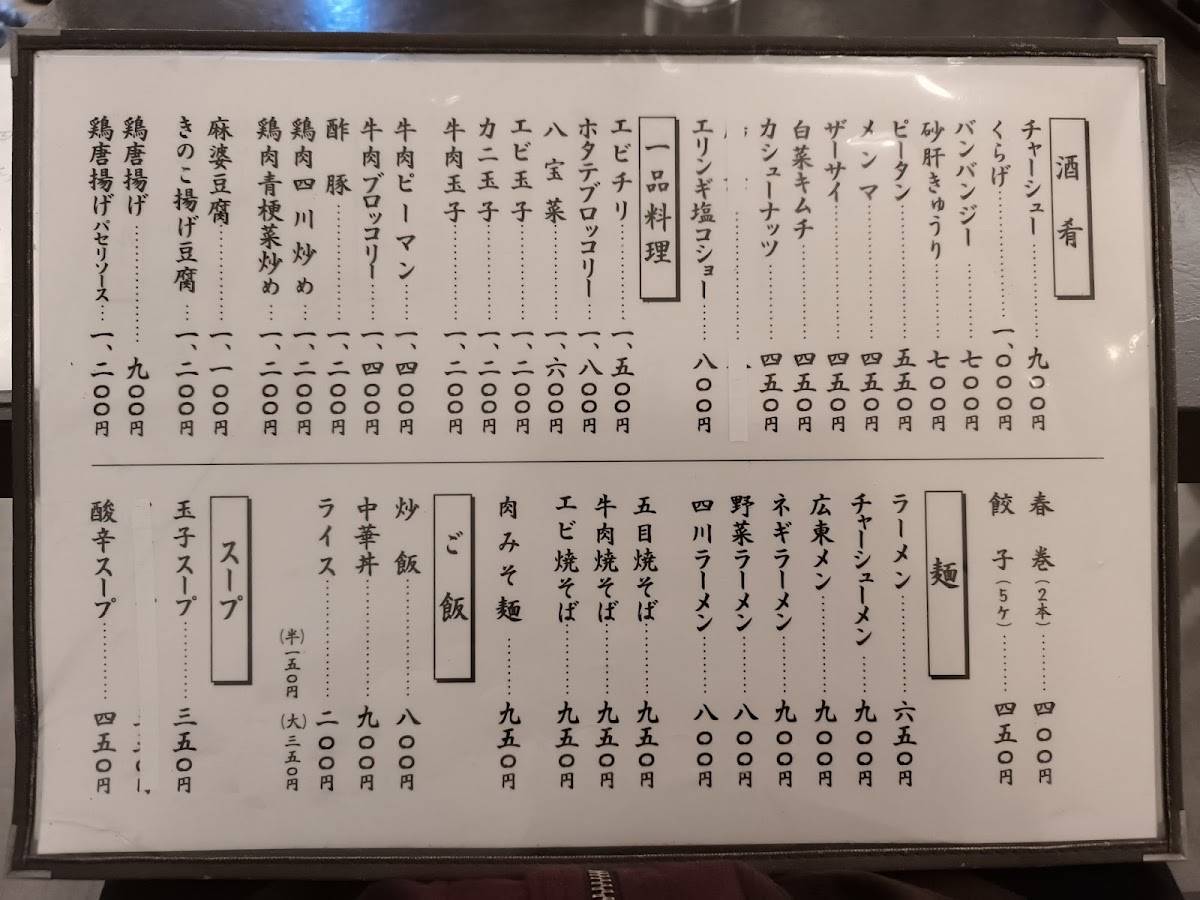 酒肴
チャーシュー…………九〇〇円
くらげ…………一、〇〇〇円
バンバンジー…………七〇〇円
砂肝きゅうり…………七〇〇円
ピータン…………五五〇円
メンマ…………四五〇円
ザーサイ…………四五〇円
白菜キムチ…………四五〇円
カシューナッツ…………四五〇円
エリンギ塩コショー……八〇〇円
一品料理
エビチリ…………一、五〇〇円
ホタテブロッコリー…一、八〇〇円
八宝菜…………一、六〇〇円
エビ玉子…………一、二〇〇円
カニ玉子…………一、二〇〇円
牛肉玉子…………一、二〇〇円
牛肉ピーマン……一、四〇〇円
牛肉ブロッコリー…一、四〇〇円
酢豚…………一、二〇〇円
鶏肉四川炒め…一、二〇〇円
鶏肉青梗菜炒め…一、二〇〇円
麻婆豆腐…………一、一〇〇円
きのこ揚げ豆腐…一、二〇〇円
鶏唐揚げ…………九〇〇円
鶏唐揚げパセリソース…一、二〇〇円
春巻(2本)……四〇〇円
餃子(5ケ)……四五〇円
麺
ラーメン…………六五〇円
チャーシューメン……九〇〇円
広東メン…………九〇〇円
ネギラーメン…………九〇〇円
野菜ラーメン…………八〇〇円
四川ラーメン…………八〇〇円
五目焼そば…………九五〇円
牛肉焼そば…………九五〇円
エビ焼そば…………九五〇円
肉みそ麺…………九五〇円
ご飯
炒飯…………八〇〇円
中華丼…………九〇〇円
ライス…………二〇〇円
(半)一五〇円 (大)三五〇円
スープ
玉子スープ…………三五〇円
酸辛スープ…………四五〇円